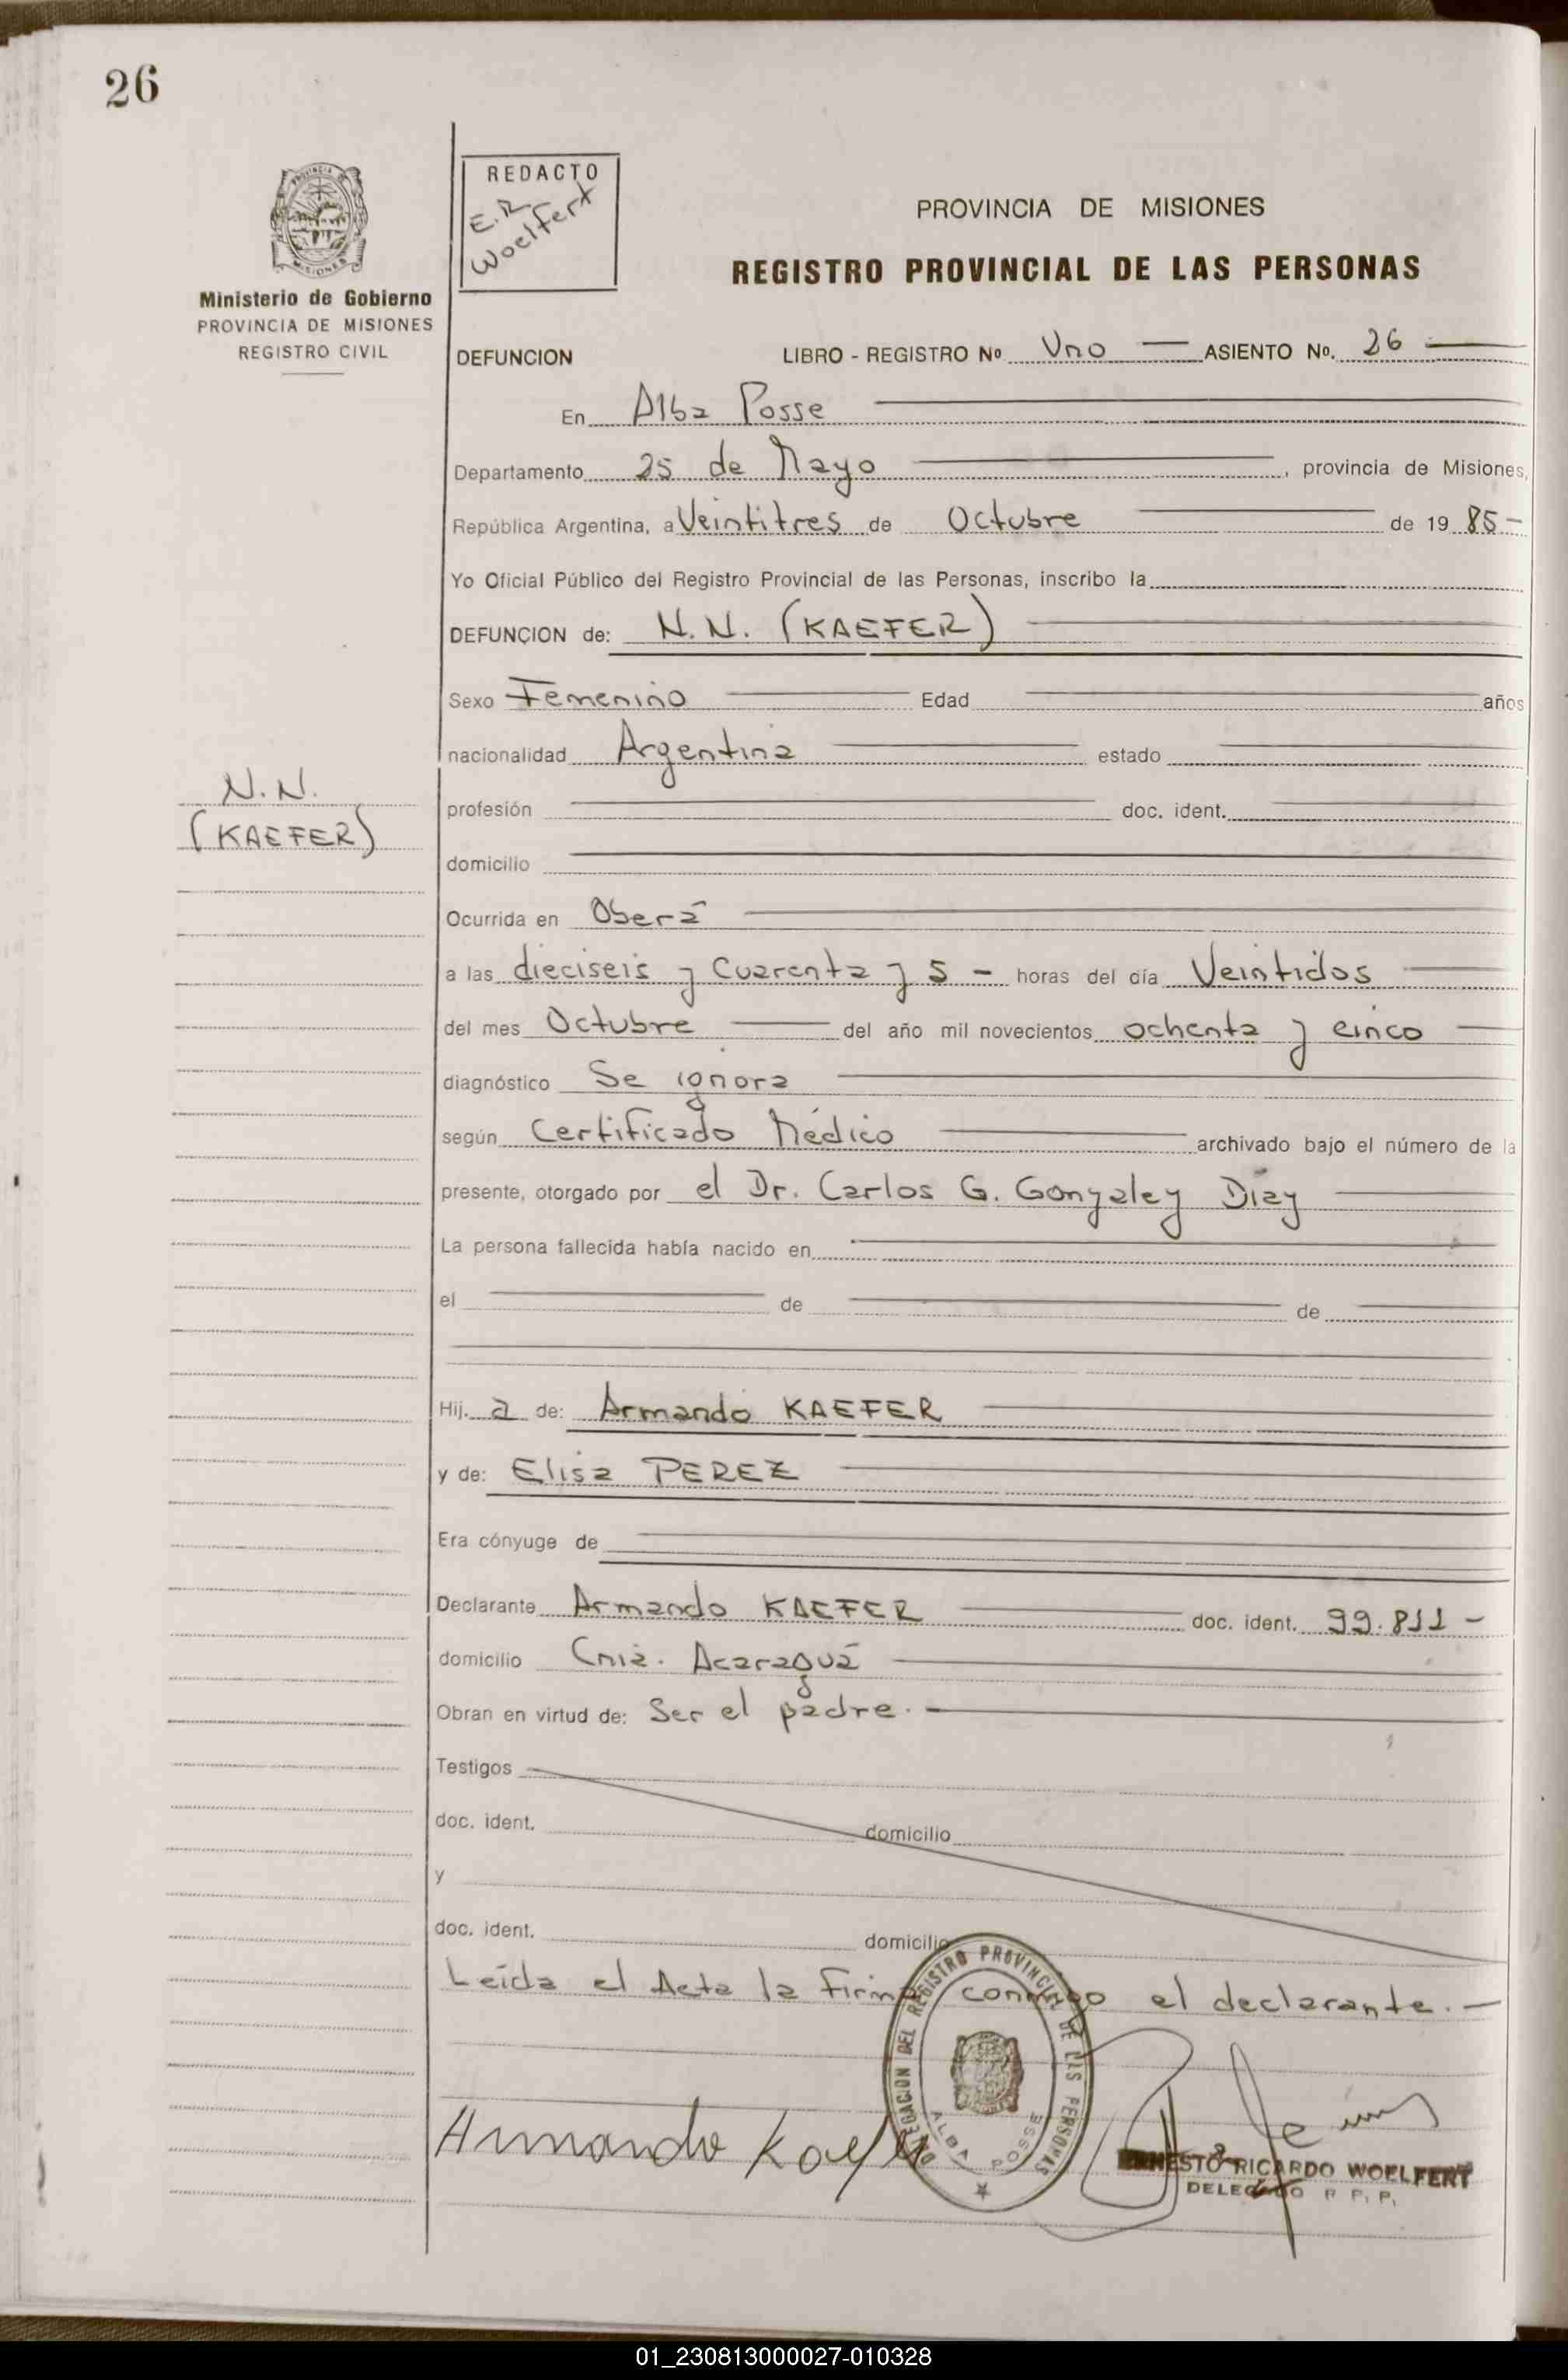 26
PROVINCIA DE
MISIONES
Ministerio de Gobierno
PROVINCIA DE MISIONES
REGISTRO CIVIL
REDACTO
E.R
Woelfert
PROVINCIA DE MISIONES
REGISTRO PROVINCIAL DE LAS PERSONAS
DEFUNCION LIBRO - REGISTRO Nº Uno ASIENTO No. 26
En Alba Posse
Departamento 25 de Mayo , provincia de Misiones,
República Argentina, a Veintitres de Octubre de 19 85-
Yo Oficial Público del Registro Provincial de las Personas, inscribo la
DEFUNCION de: N.N. (KAEFER)
Sexo Femenino Edad años
nacionalidad Argentina estado
N.N.
(KAEFER)
profesión doc. ident.
domicilio
Ocurrida en Oberá
a las dieciseis y Cuarenta y 5 - horas del día Veintidos
del mes Octubre del año mil novecientos ochenta y cinco
diagnóstico Se ignora
según Certificado Médico archivado bajo el número de la
presente, otorgado por el Dr. Carlos G. Gonzalez Díaz
La persona fallecida había nacido en
el de de
Hij. a de: Armando KAEFER
y de: Elisa PEREZ
Era cónyuge de
Declarante Armando KAEFER doc. ident. 99.811 -
domicilio Cnia. Acaraguá
Obran en virtud de: Ser el padre. -
Testigos
doc. ident. domicilio
y
doc. ident. domicilio
Leída el Acta la Firma conmigo el declarante. -
DELEGACION DEL REGISTRO PROVINCIAL DE LAS PERSONAS
ALBA POSSE
Armando Kaefer
ERNESTO RICARDO WOELFERT
DELEGADO R. P. P.
01_230813000027-010328